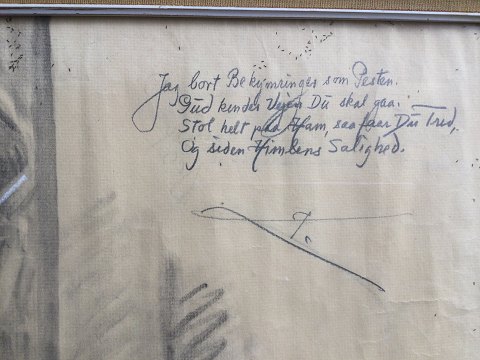 Jag bort Bekymringer som Pesten.
Gud kender Vejen Du skal gaa.
Stol helt paa Ham, saa faar Du Fred,
Og siden Himlens Salighed.
7.